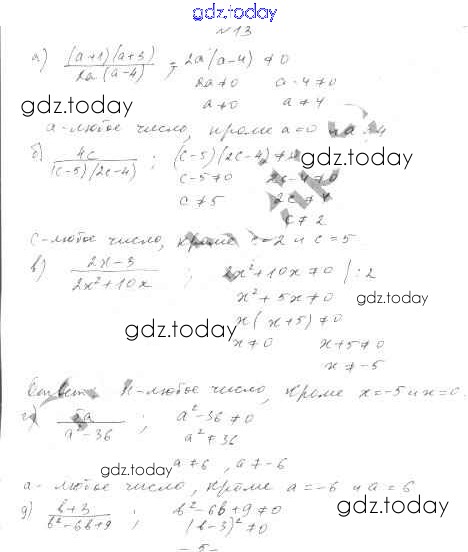 gdz.today
№ 13
а) (a+1)(a+3) / 2a(a-4) ; 2a(a-4) ≠ 0
2a ≠ 0 a-4 ≠ 0
gdz.today
a ≠ 0 a ≠ 4
а - любое число, кроме a=0 и a=4
gdz.today
б) 4c / (c-5)(2c-4) ; (c-5)(2c-4) ≠
c-5 ≠ 0 2c-4 ≠ 0
c ≠ 5 2c ≠ 4
c ≠ 2
c - любое число, кроме c=2 и c=5
в) 2x-3 / 2x²+10x ; 2x²+10x ≠ 0 /:2
x²+5x ≠ 0
gdz.today
x(x+5) ≠ 0
gdz.today
x ≠ 0 x+5 ≠ 0
x ≠ -5
Ответ: x - любое число, кроме x=-5 и x=0.
г) a / a²-36 ; a²-36 ≠ 0
a² ≠ 36
gdz.today
a ≠ 6, a ≠ -6
а - любое число, кроме a=-6 и a=6
gdz.today
д) b+3 / b²-6b+9 ; b²-6b+9 ≠ 0
(b-3)² ≠ 0
- 5 -